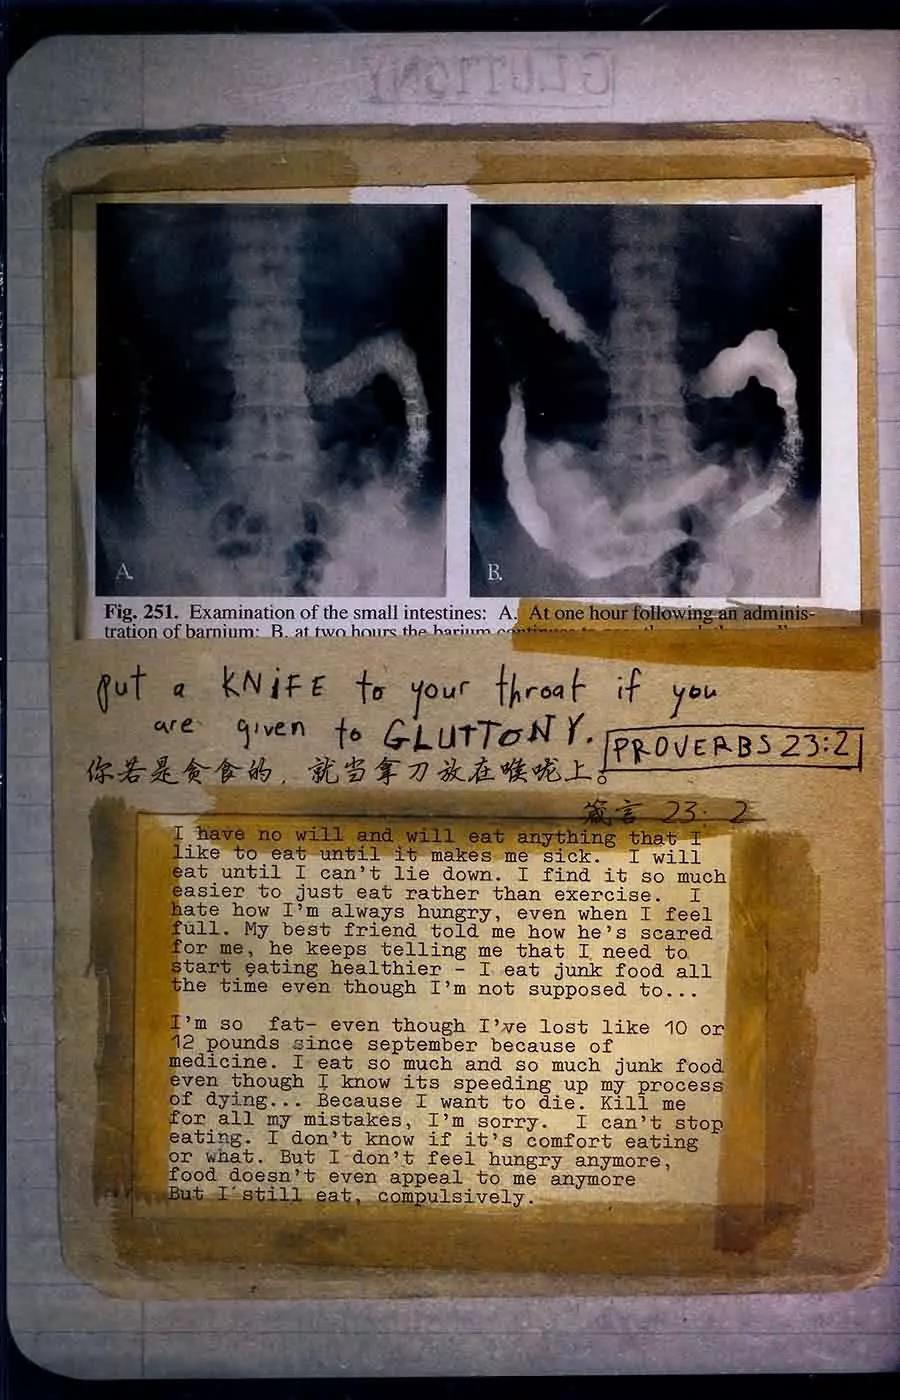 GLUTTONY
A.
B.
Fig. 251. Examination of the small intestines: A. At one hour following an adminis-
tration of barnium: B. at two hours the barium continues to
put a KNIFE to your throat if you
are given to GLUTTONY.
PROVERBS 23:2
你若是贪食的，就当拿刀放在喉咙上。
箴言 23:2
I have no will and will eat anything that I
like to eat until it makes me sick. I will
eat until I can't lie down. I find it so much
easier to just eat rather than exercise. I
hate how I'm always hungry, even when I feel
full. My best friend told me how he's scared
for me, he keeps telling me that I need to
start eating healthier - I eat junk food all
the time even though I'm not supposed to...
I'm so fat- even though I've lost like 10 or
12 pounds since september because of
medicine. I eat so much and so much junk food
even though I know its speeding up my process
of dying... Because I want to die. Kill me
for all my mistakes, I'm sorry. I can't stop
eating. I don't know if it's comfort eating
or what. But I don't feel hungry anymore,
food doesn't even appeal to me anymore
But I still eat, compulsively.